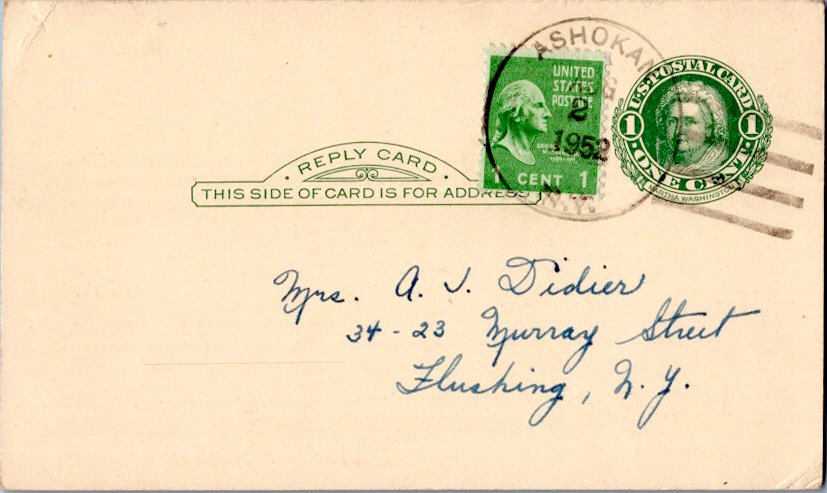 ASHOKAN
2
1952
N.Y.
UNITED
STATES
POSTAGE
1 CENT 1
U.S. POSTAL CARD
1 1
ONE CENT
MARTHA WASHINGTON
· REPLY CARD ·
THIS SIDE OF CARD IS FOR ADDRESS
Mrs. A. J. Didier
34-23 Murray Street
Flushing, N.Y.